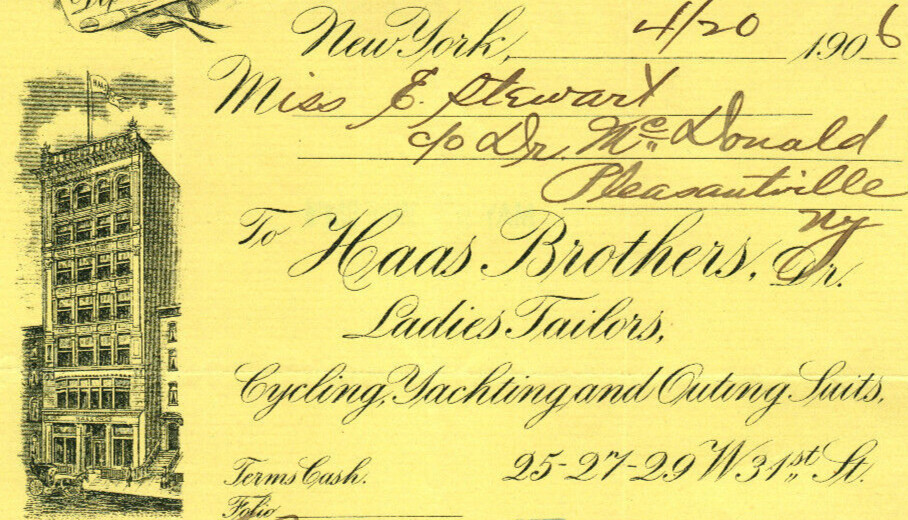 New York, 4/20 1906
Miss E. Stewart
c/o Dr. Mc Donald
Pleasantville
Ny
To Haas Brothers, Dr.
Ladies Tailors,
Cycling, Yachting and Outing Suits,
25-27-29 W. 31st St.
Terms Cash.
Folio